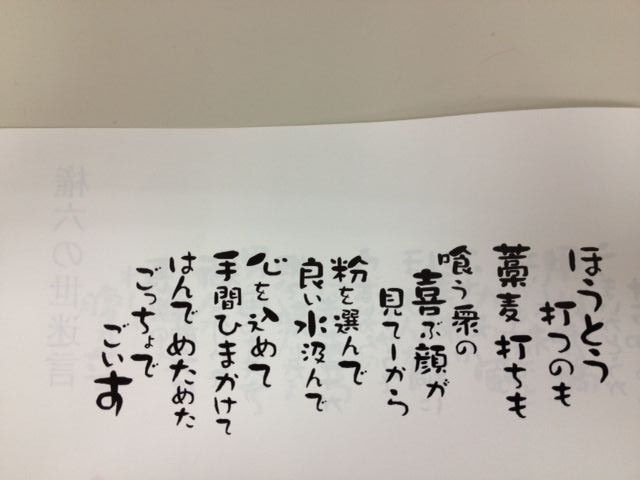 ほうとう
打つのも
藁麦打ちも
喰う衆の
喜ぶ顔が
見てーから
粉を選んで
良い水汲んで
心を込めて
手間ひまかけて
はんでめためた
ごっちょで
ごいす
権六の世迷言